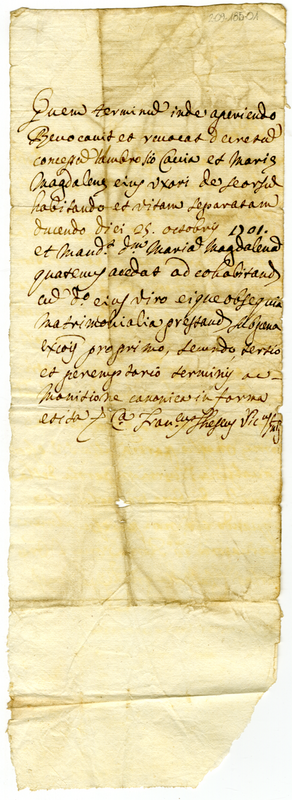 209.165.121
Quem terminũ inde aperiendo
Revocavit et revocat decretũ
concessũ Ambrosio Cavia et Marię
Magdalenę eius Uxori de seorsũ
habitando et vitam separatam
ducendo diei 25. octobris 1701.
et Mand.t dm̃ Mariã Magdalenã
quatenus accedat ad cohabitand
cũ d.o eius viro eique obsequia
matrimonialia prestand
excõis pro primo, secundo tertio
et peremptorio terminis ac
Monitione canonica in forma
et ita